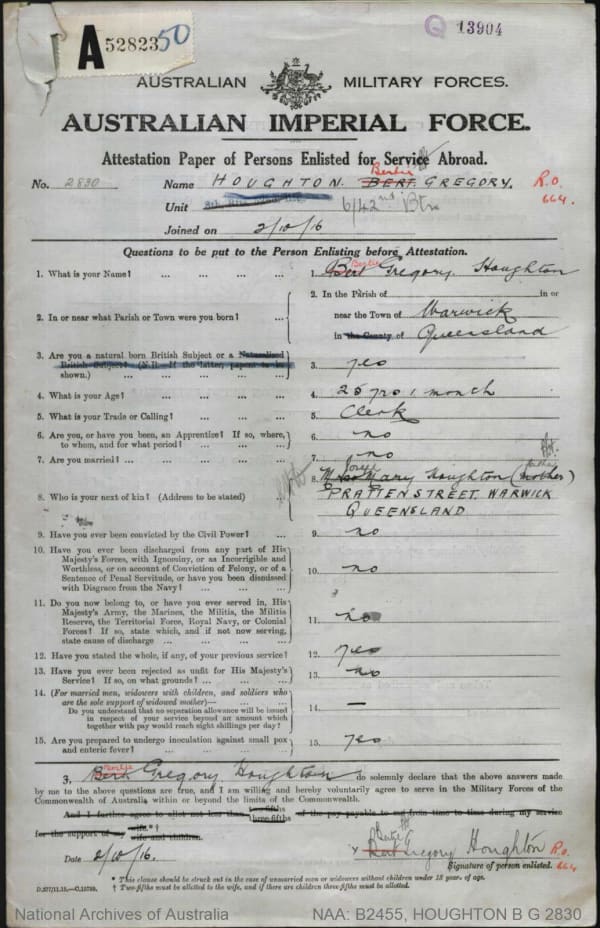 A 52823 50
Q 13904
AUSTRALIAN MILITARY FORCES.
AUSTRALIAN IMPERIAL FORCE.
Attestation Paper of Persons Enlisted for Service Abroad.
No. 2830 Name HOUGHTON. BERT. Bertie GREGORY. R.O. 664.
Unit 6/42nd Btn
Joined on 2/10/16
Questions to be put to the Person Enlisting before Attestation.
1. What is your Name? ... ... ... ... 1. Bert Bertie Gregory Houghton
2. In or near what Parish or Town were you born? ... 2. In the Parish of in or
near the Town of Warwick
in the County of Queensland
3. Are you a natural born British Subject or a Naturalised
British Subject? (N.B.—If the latter, papers to be
shown.) ... ... ... ... 3. yes
4. What is your Age? ... ... ... ... 4. 25 yrs 1 month
5. What is your Trade or Calling? ... ... ... 5. Clerk
6. Are you, or have you been, an Apprentice? If so, where,
to whom, and for what period? ... ... ... 6. no
7. Are you married? ... ... ... ... 7. no
8. Who is your next of kin? (Address to be stated) ... 8. Mrs Mary Houghton (mother)
PRATTEN STREET. WARWICK
QUEENSLAND
9. Have you ever been convicted by the Civil Power? ... 9. no
10. Have you ever been discharged from any part of His
Majesty's Forces, with Ignominy, or as Incorrigible and
Worthless, or on account of Conviction of Felony, or of a
Sentence of Penal Servitude, or have you been dismissed
with Disgrace from the Navy? ... ... ... 10. no
11. Do you now belong to, or have you ever served in, His
Majesty's Army, the Marines, the Militia, the Militia
Reserve, the Territorial Force, Royal Navy, or Colonial
Forces? If so, state which, and if not now serving,
state cause of discharge ... ... ... 11. no
12. Have you stated the whole, if any, of your previous service? 12. yes
13. Have you ever been rejected as unfit for His Majesty's
Service? If so, on what grounds? ... ... ... 13. no
14. (For married men, widowers with children, and soldiers who
are the sole support of widowed mother)—
Do you understand that no separation allowance will be issued
in respect of your service beyond an amount which
together with pay would reach eight shillings per day? 14. —
15. Are you prepared to undergo inoculation against small pox
and enteric fever? ... ... ... ... 15. yes
I, Bert Bertie Gregory Houghton do solemnly declare that the above answers made
by me to the above questions are true, and I am willing and hereby voluntarily agree to serve in the Military Forces of the
Commonwealth of Australia within or beyond the limits of the Commonwealth.
And I further agree to allot not less than two-fifths three-fifths of the pay payable to me from time to time during my service
for the support of my wife.*† wife and children.
Date 2/10/16. x Bert Bertie Gregory Houghton R.O. 664
Signature of person enlisted.
* This clause should be struck out in the case of unmarried men or widowers without children under 18 years of age.
D.277/11.15.—C.15750. † Two-fifths must be allotted to the wife, and if there are children three-fifths must be allotted.
National Archives of Australia NAA: B2455, HOUGHTON B G 2830